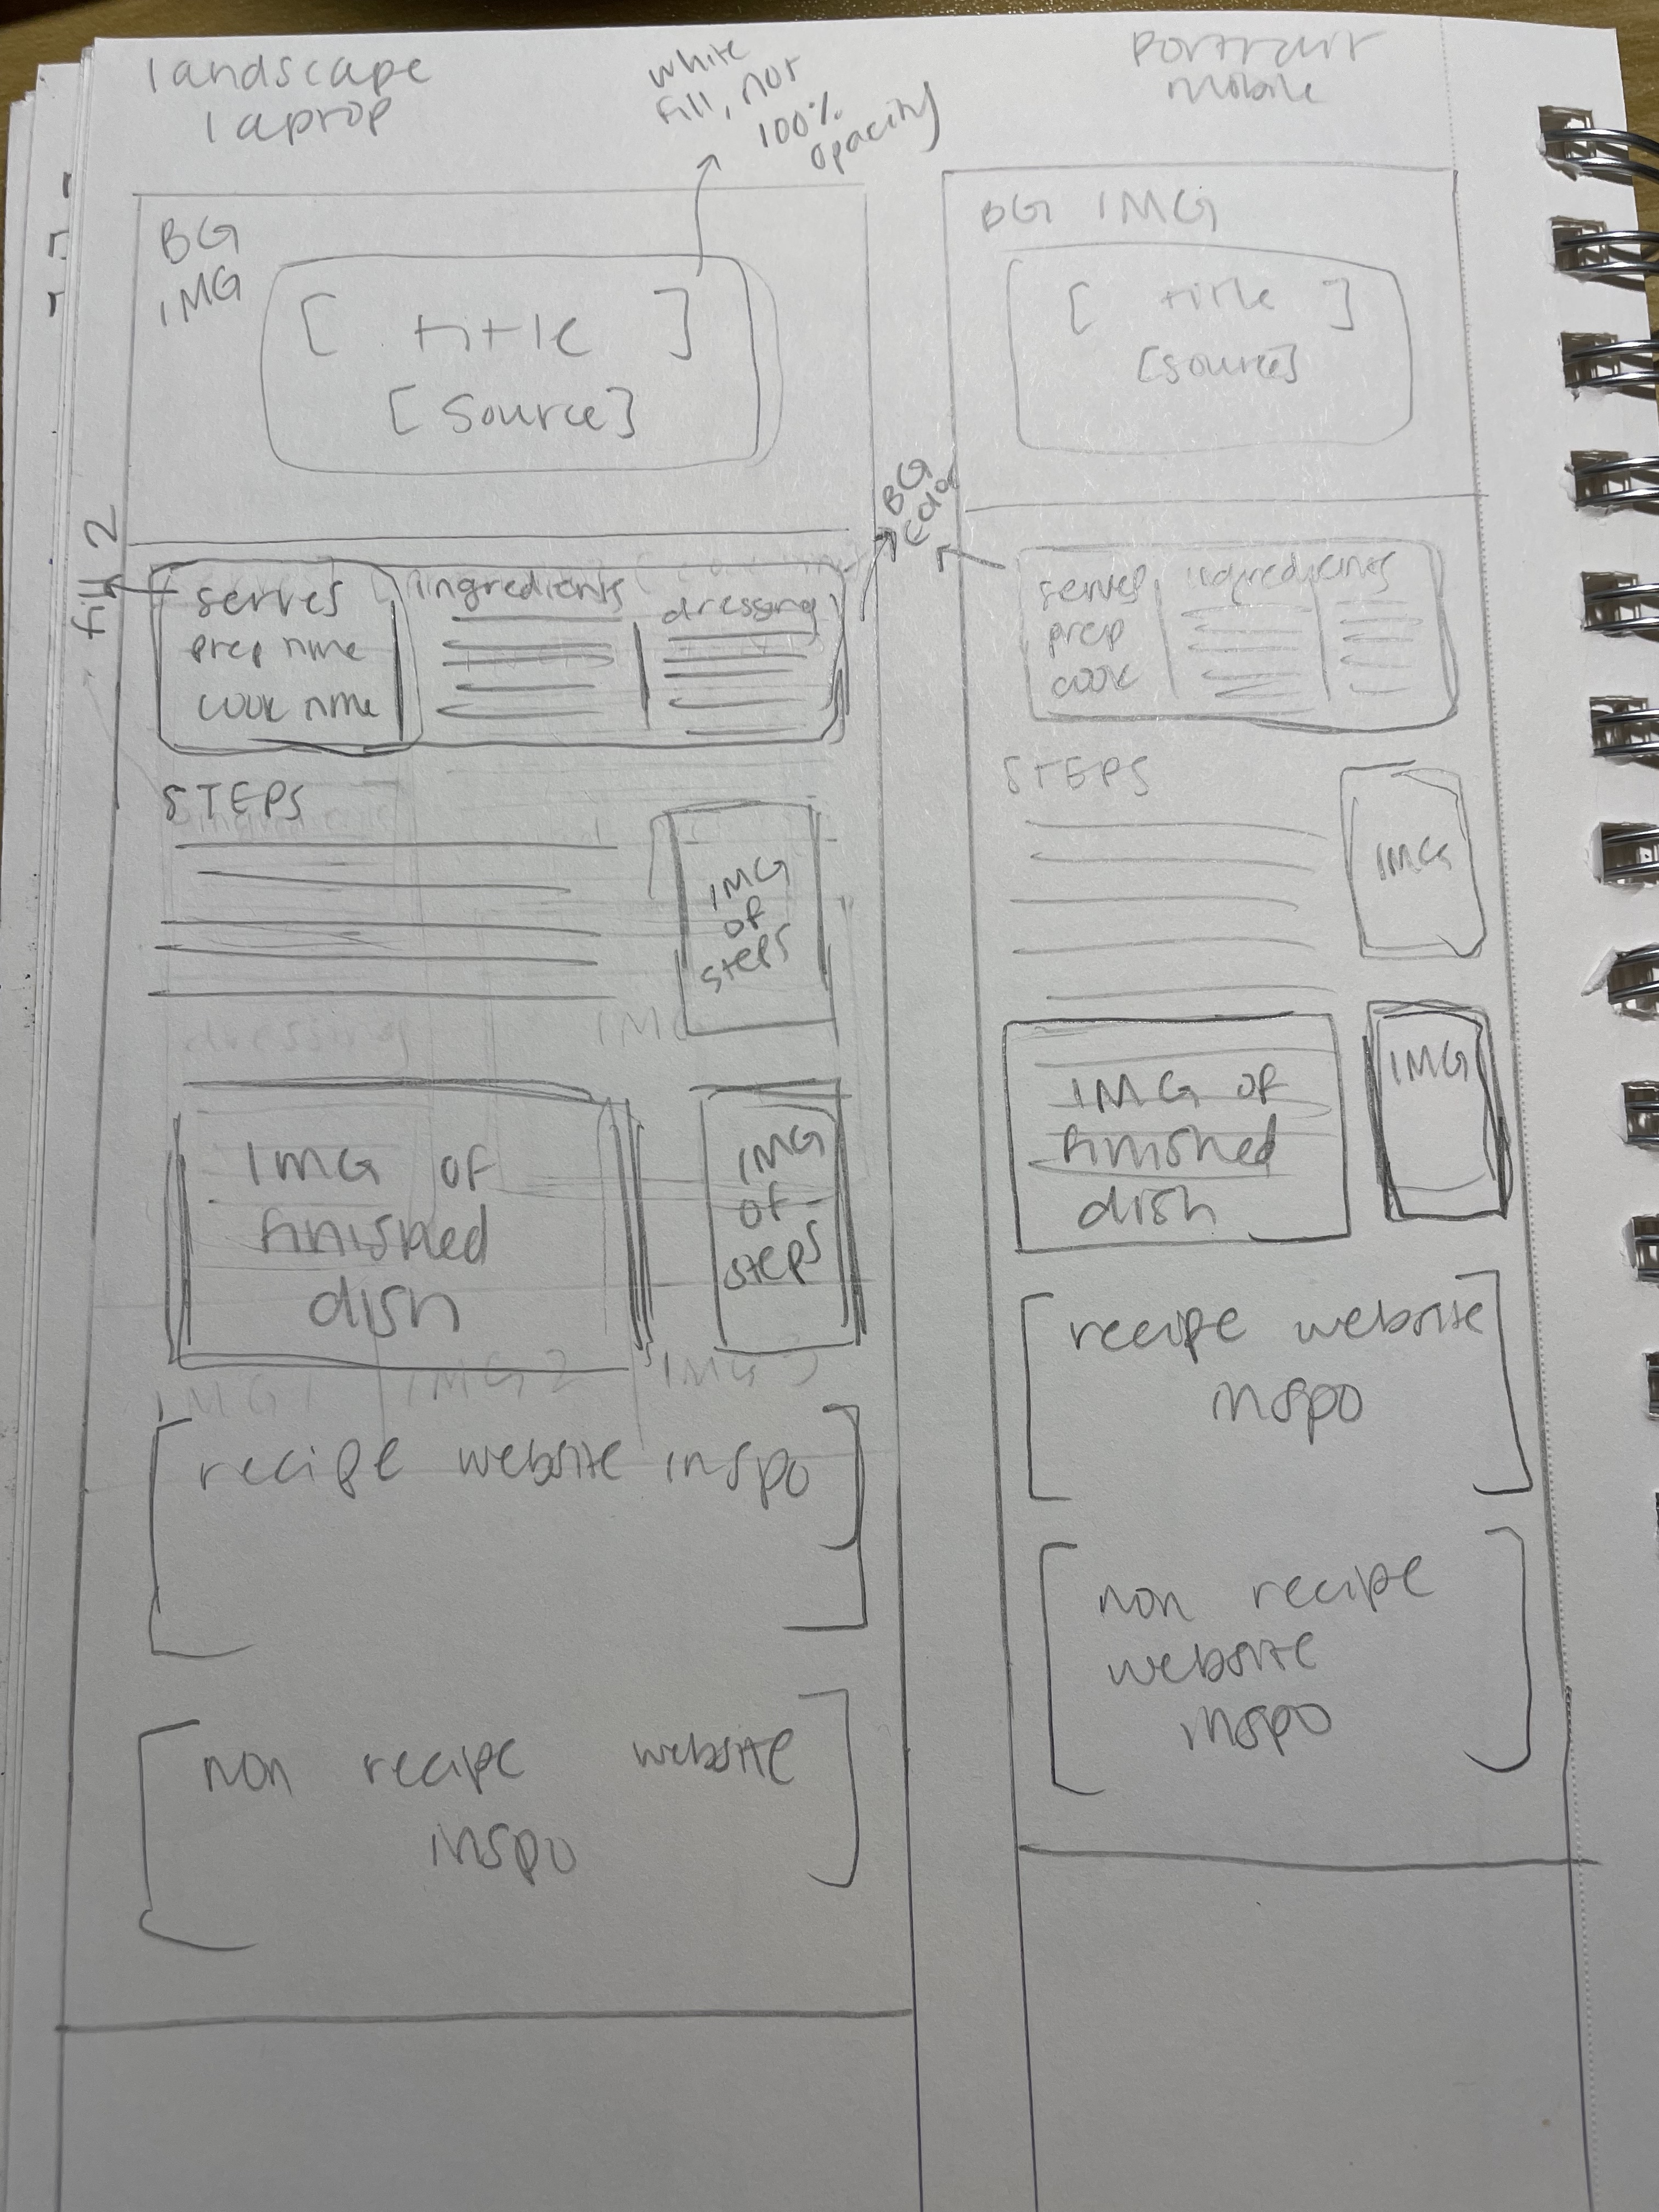 landscape
laptop
white
fill, not
100%
opacity
BG
IMG
[ title ]
[ source ]
fill 2
BG
color
serves
prep time
cook time
ingredients
dressing
STEPS
IMG
OF
steps
dressing
IMG
IMG OF
finished
dish
IMG
OF
steps
IMG 1
IMG 2
IMG 3
[recipe website inspo]
[non recipe website
inspo]
portrait
mobile
BG IMG
[ title ]
[source]
serves
prep
cook
ingredients
STEPS
IMG
IMG OF
finished
dish
IMG
[recipe website
inspo]
[non recipe
website
inspo]